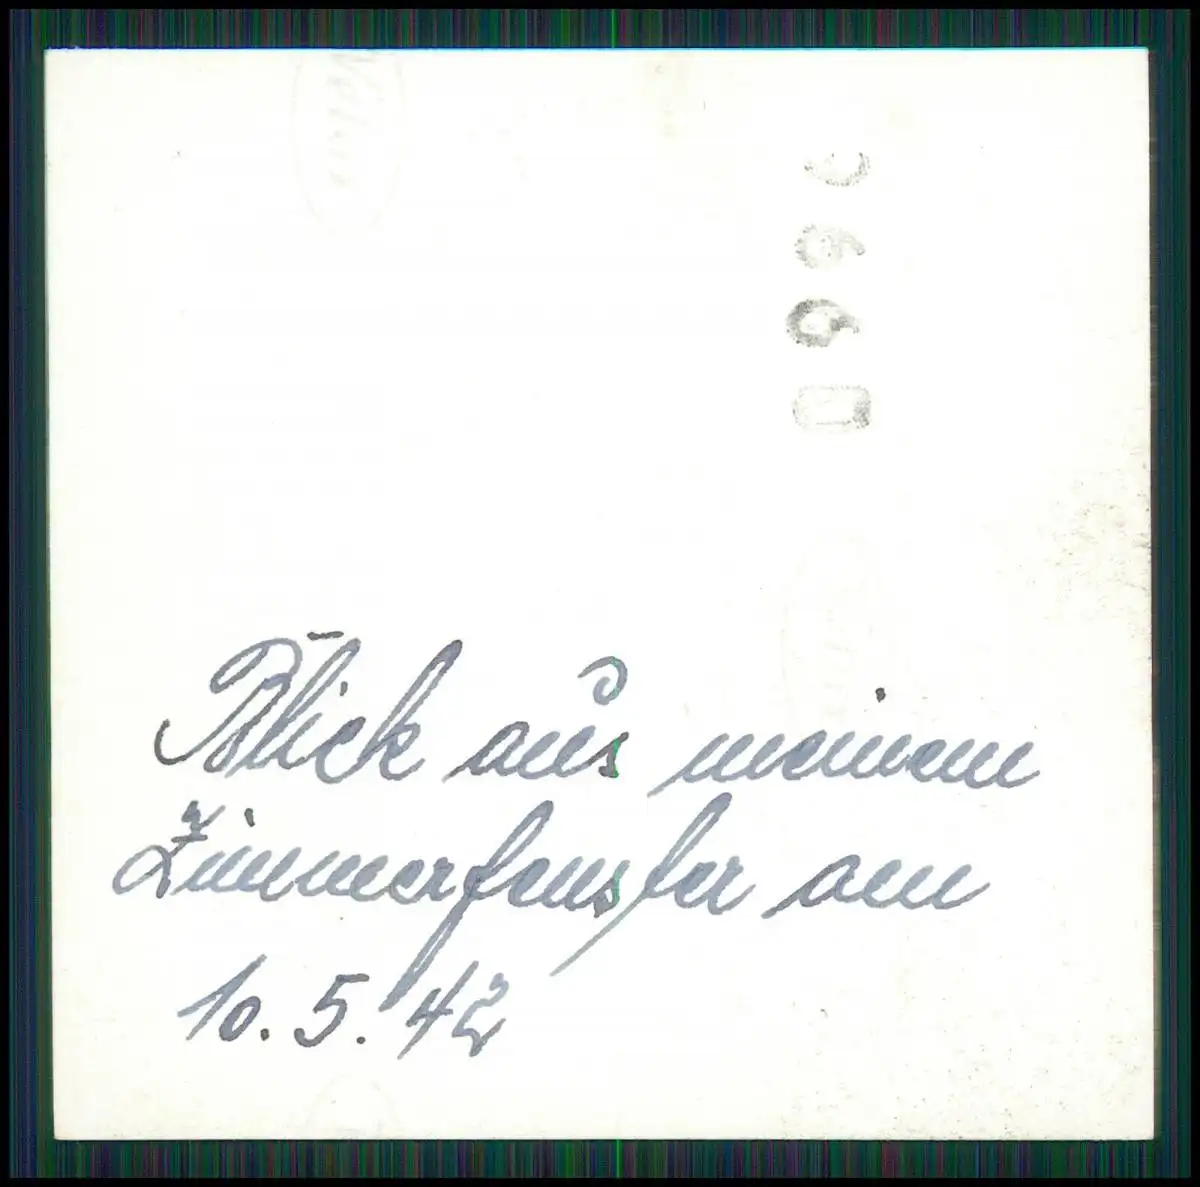 Blick aus meinem
Zimmerfenster am
10.5.42
Velox